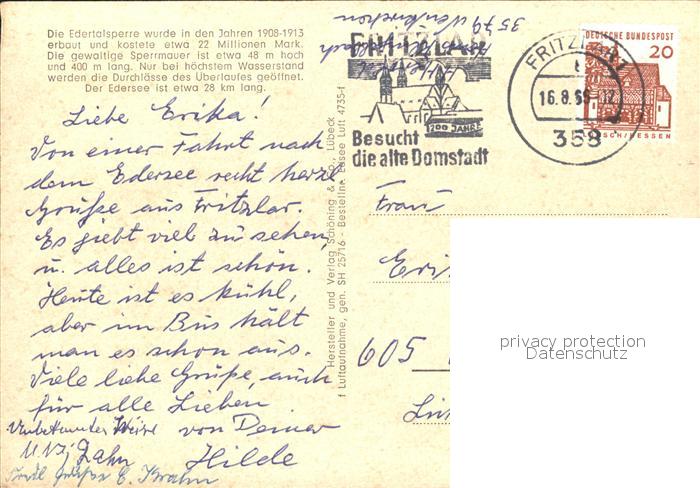 Die Edertalsperre wurde in den Jahren 1908-1913
erbaut und kostete etwa 22 Millionen Mark.
Die gewaltige Sperrmauer ist etwa 48 m hoch
und 400 m lang. Nur bei höchstem Wasserstand
werden die Durchlässe des Überlaufes geöffnet.
Der Edersee ist etwa 28 km lang.
Liebe Erika!
Von einer Fahrt nach
dem Edersee recht herzl
Grüße aus Fritzlar.
Es giebt viel zu sehen,
u. alles ist schön.
Heute ist es kühl,
aber im Bus hält
man es schon aus.
Viele liebe Grüße, auch
für alle Lieben
von Deiner
Hilde
Unbekannter Weise
Zahn
Grüße E. Krahn
Hersteller und Verlag Schöning & Co., Lübeck
f Luftaufnahme, gen. SH 25716 - Bestellnr. Edsee Luft 4735-f
3579 Neukirchen
FRITZLAR
1200 JAHRE
Besucht
die alte Domstadt
FRITZLAR
16.8.
358
DEUTSCHE BUNDESPOST
20
LORSCH/HESSEN
Frau
Eri
605
privacy protection
Datenschutz